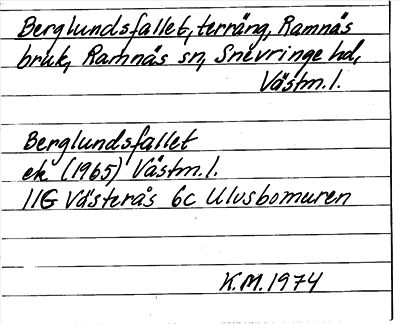 Berglundsfallet, terräng, Ramnäs
bruk, Ramnäs sn, Snevringe hd,
Västm. l.
Berglundsfallet
ek (1965) Västm. l.
11G Västerås 6c Ulvsbomuren
K.M. 1974